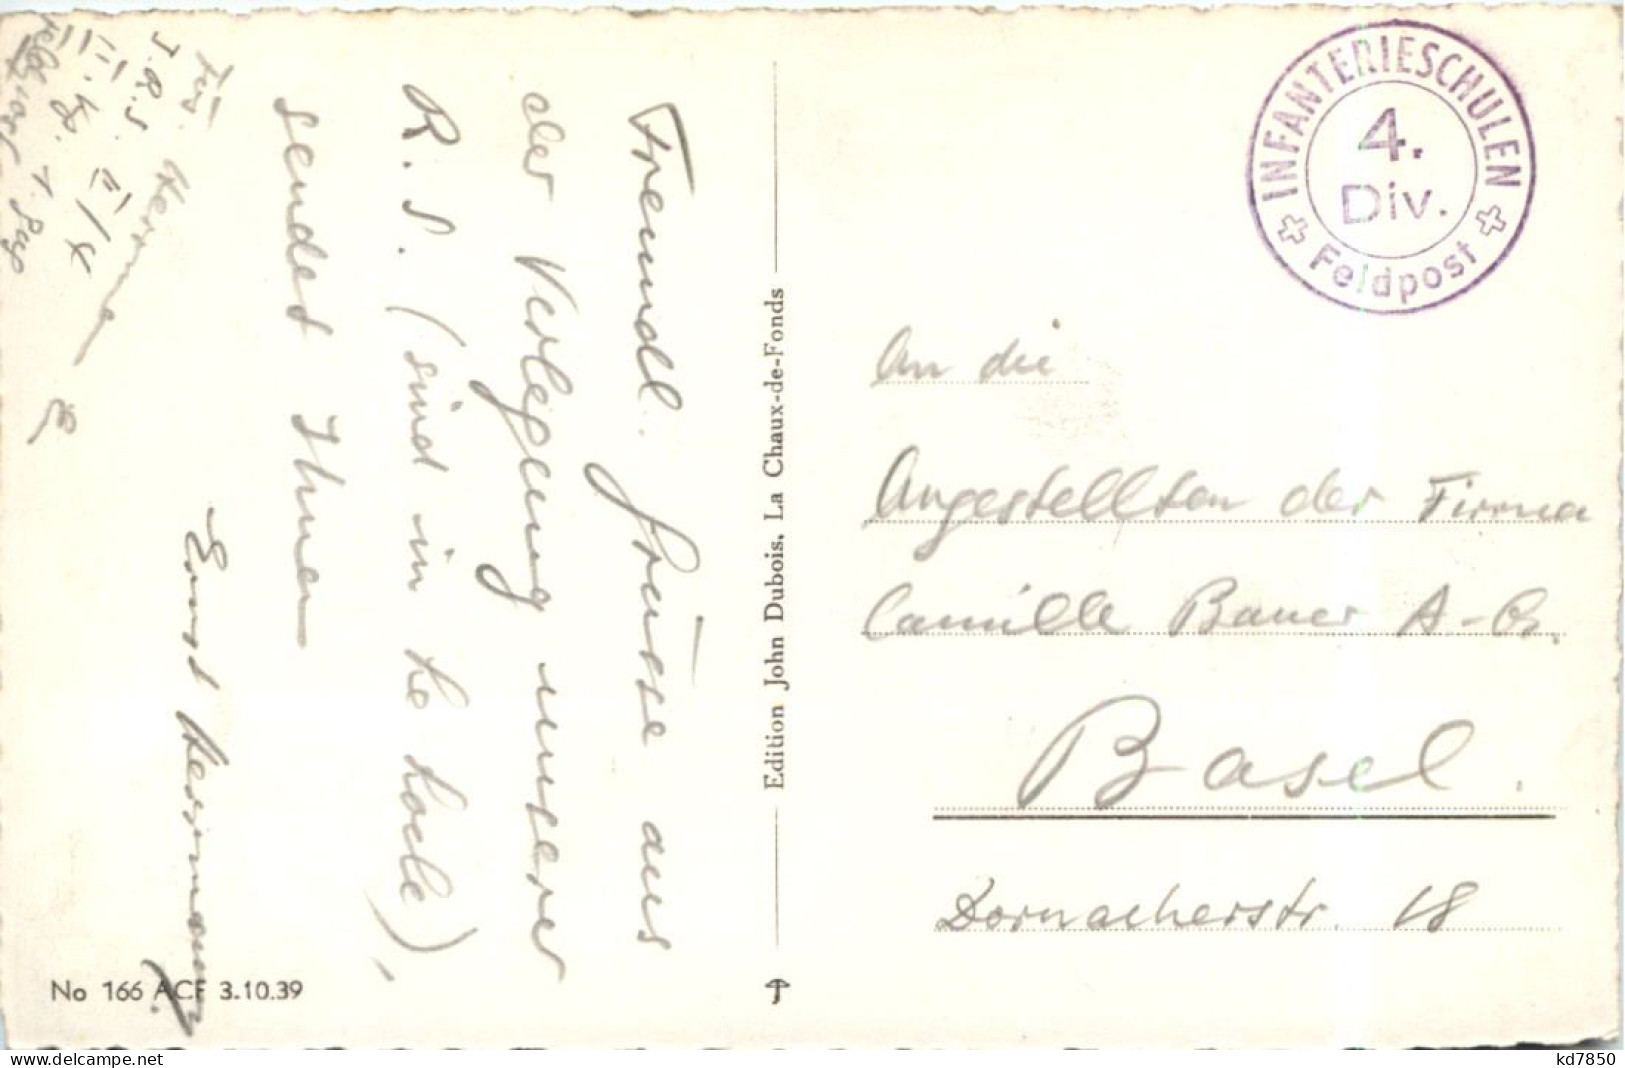 Freundl. Grüsse aus
der Verlegung unserer
R.S. (sind in Le Locle),
sendet Ihnen
Ernst Herrmann.
Füs. Herrmann E
I.R.S. II/4
II. Kp. 1. Zug
Feldpost
Edition John Dubois, La Chaux-de-Fonds
No 166 ACF 3.10.39
INFANTERIESCHULEN
4.
Div.
Feldpost
An die
Angestellten der Firma
Camille Bauer A-G.
Basel.
Dornacherstr. 18
delcampe.net
kd7850